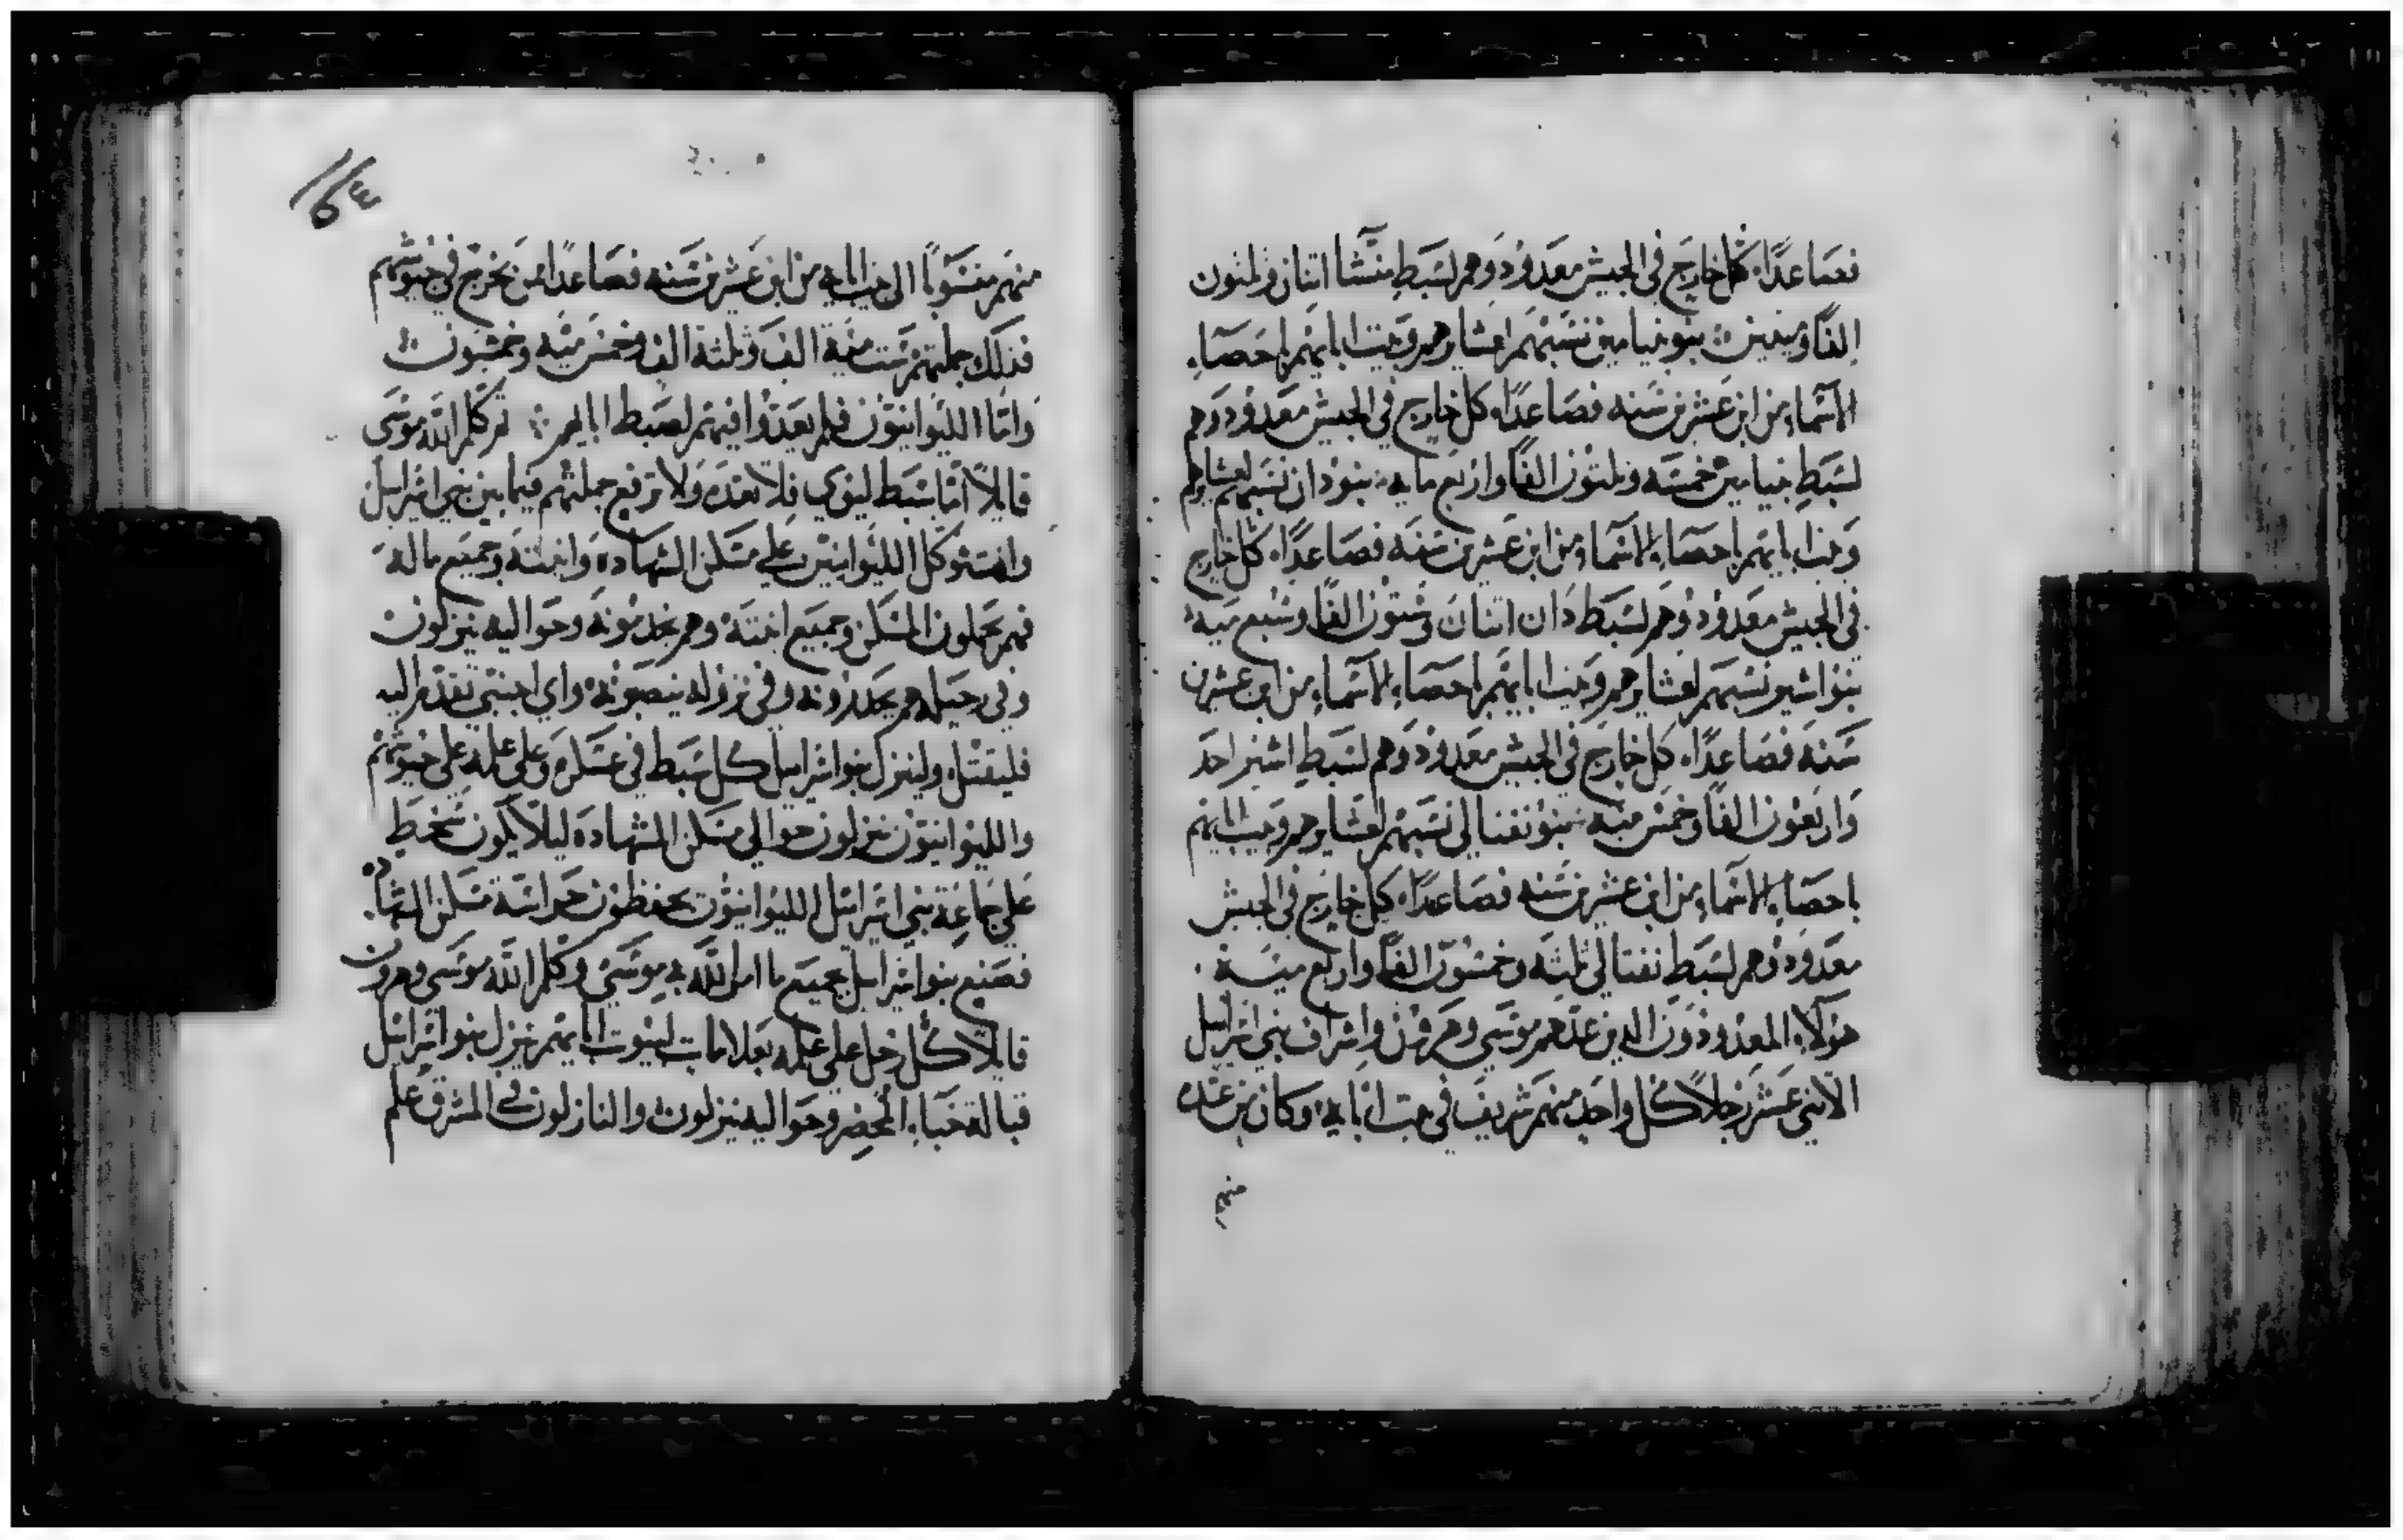 فصاعدًا، كل خارج في الجيش معدود وهم لسبط منشا اتنان وثلثون
الفًا وميتين ⁘ بنو بنيامين نسبهم لعشايرهم وبيت ابايهم باحصاء
الاسماء من ابن عشرين سنه فصاعدًا، كل خارج في الجيش معدود وهم
لسبط بنيامين خمسه وثلثون الفًا واربع مايه ⁘ بنو دان نسبهم لعشايرهم
وبيت ابايهم باحصاء الاسماء من ابن عشرين سنه فصاعدًا، كل خارج
في الجيش معدود وهم لسبط دان اتنان وستون الفًا وسبع ميه
بنو اشير نسبهم لعشايرهم وبيت ابايهم باحصاء الاسماء من ابن عشرين
سنه فصاعدًا، كل خارج في الجيش معدود وهم لسبط اشير احد
واربعون الفًا وخمس ميه ⁘ بنو نفتالي نسبهم لعشايرهم وبيت ابايهم
باحصاء الاسماء من ابن عشرين سنه فصاعدًا، كل خارج في الجيش
معدود وهم لسبط نفتالي ثلثه وخمسون الفًا واربع ميه
هولاء المعدودون الدين عدهم موسى وهرون واشراف بني اسرايل
الاثني عشر رجلاً كل واحد منهم شريف في بيت ابايه وكان من عدد
منهم منسوبًا الى بيت ابايه من ابن عشرين سنه فصاعدًا من يخرج في جيوشهم
فذلك جملتهم ست مية الف وثلثة الف وخمس ميه وخمسون ⁘
واما الليوانيون فلم يعدوا فيهم لسبط ابايهم ⁘ ثم كلم الله موسى
قايلاً اما سبط ليوي فلا تعده ولا ترفع جملتهم فيما بين بني اسرايل
وكل الليوانيين على مسكن الشهادة وانيته وجميع ماله
فهم يحملون المسكن وجميع انيته وهم يخدمونه وحواليه ينزلون
وفي رحيله هم يحدرونه وفي نزوله ينصبونه واي اجنبي تقدم اليه
فليقتل ولينزل بنو اسرايل كل سبط في عسكره وعلى علمه على جيوشهم
والليوانيون ينزلون حوالي مسكن الشهادة ليلا يكون سخط
على جماعة بني اسرايل الليوانيون يحفظون حراسة مسكن الشهادة
فصنع بنو اسرايل جميع ما امر الله به موسى وكلم الله موسى وهرون
قايلاً كل رجل على علمه بعلامات لبيوت ابايهم ينزل بنو اسرايل
قبالة خباء المحضر وحواليه ينزلون والنازلون في المشرق علم